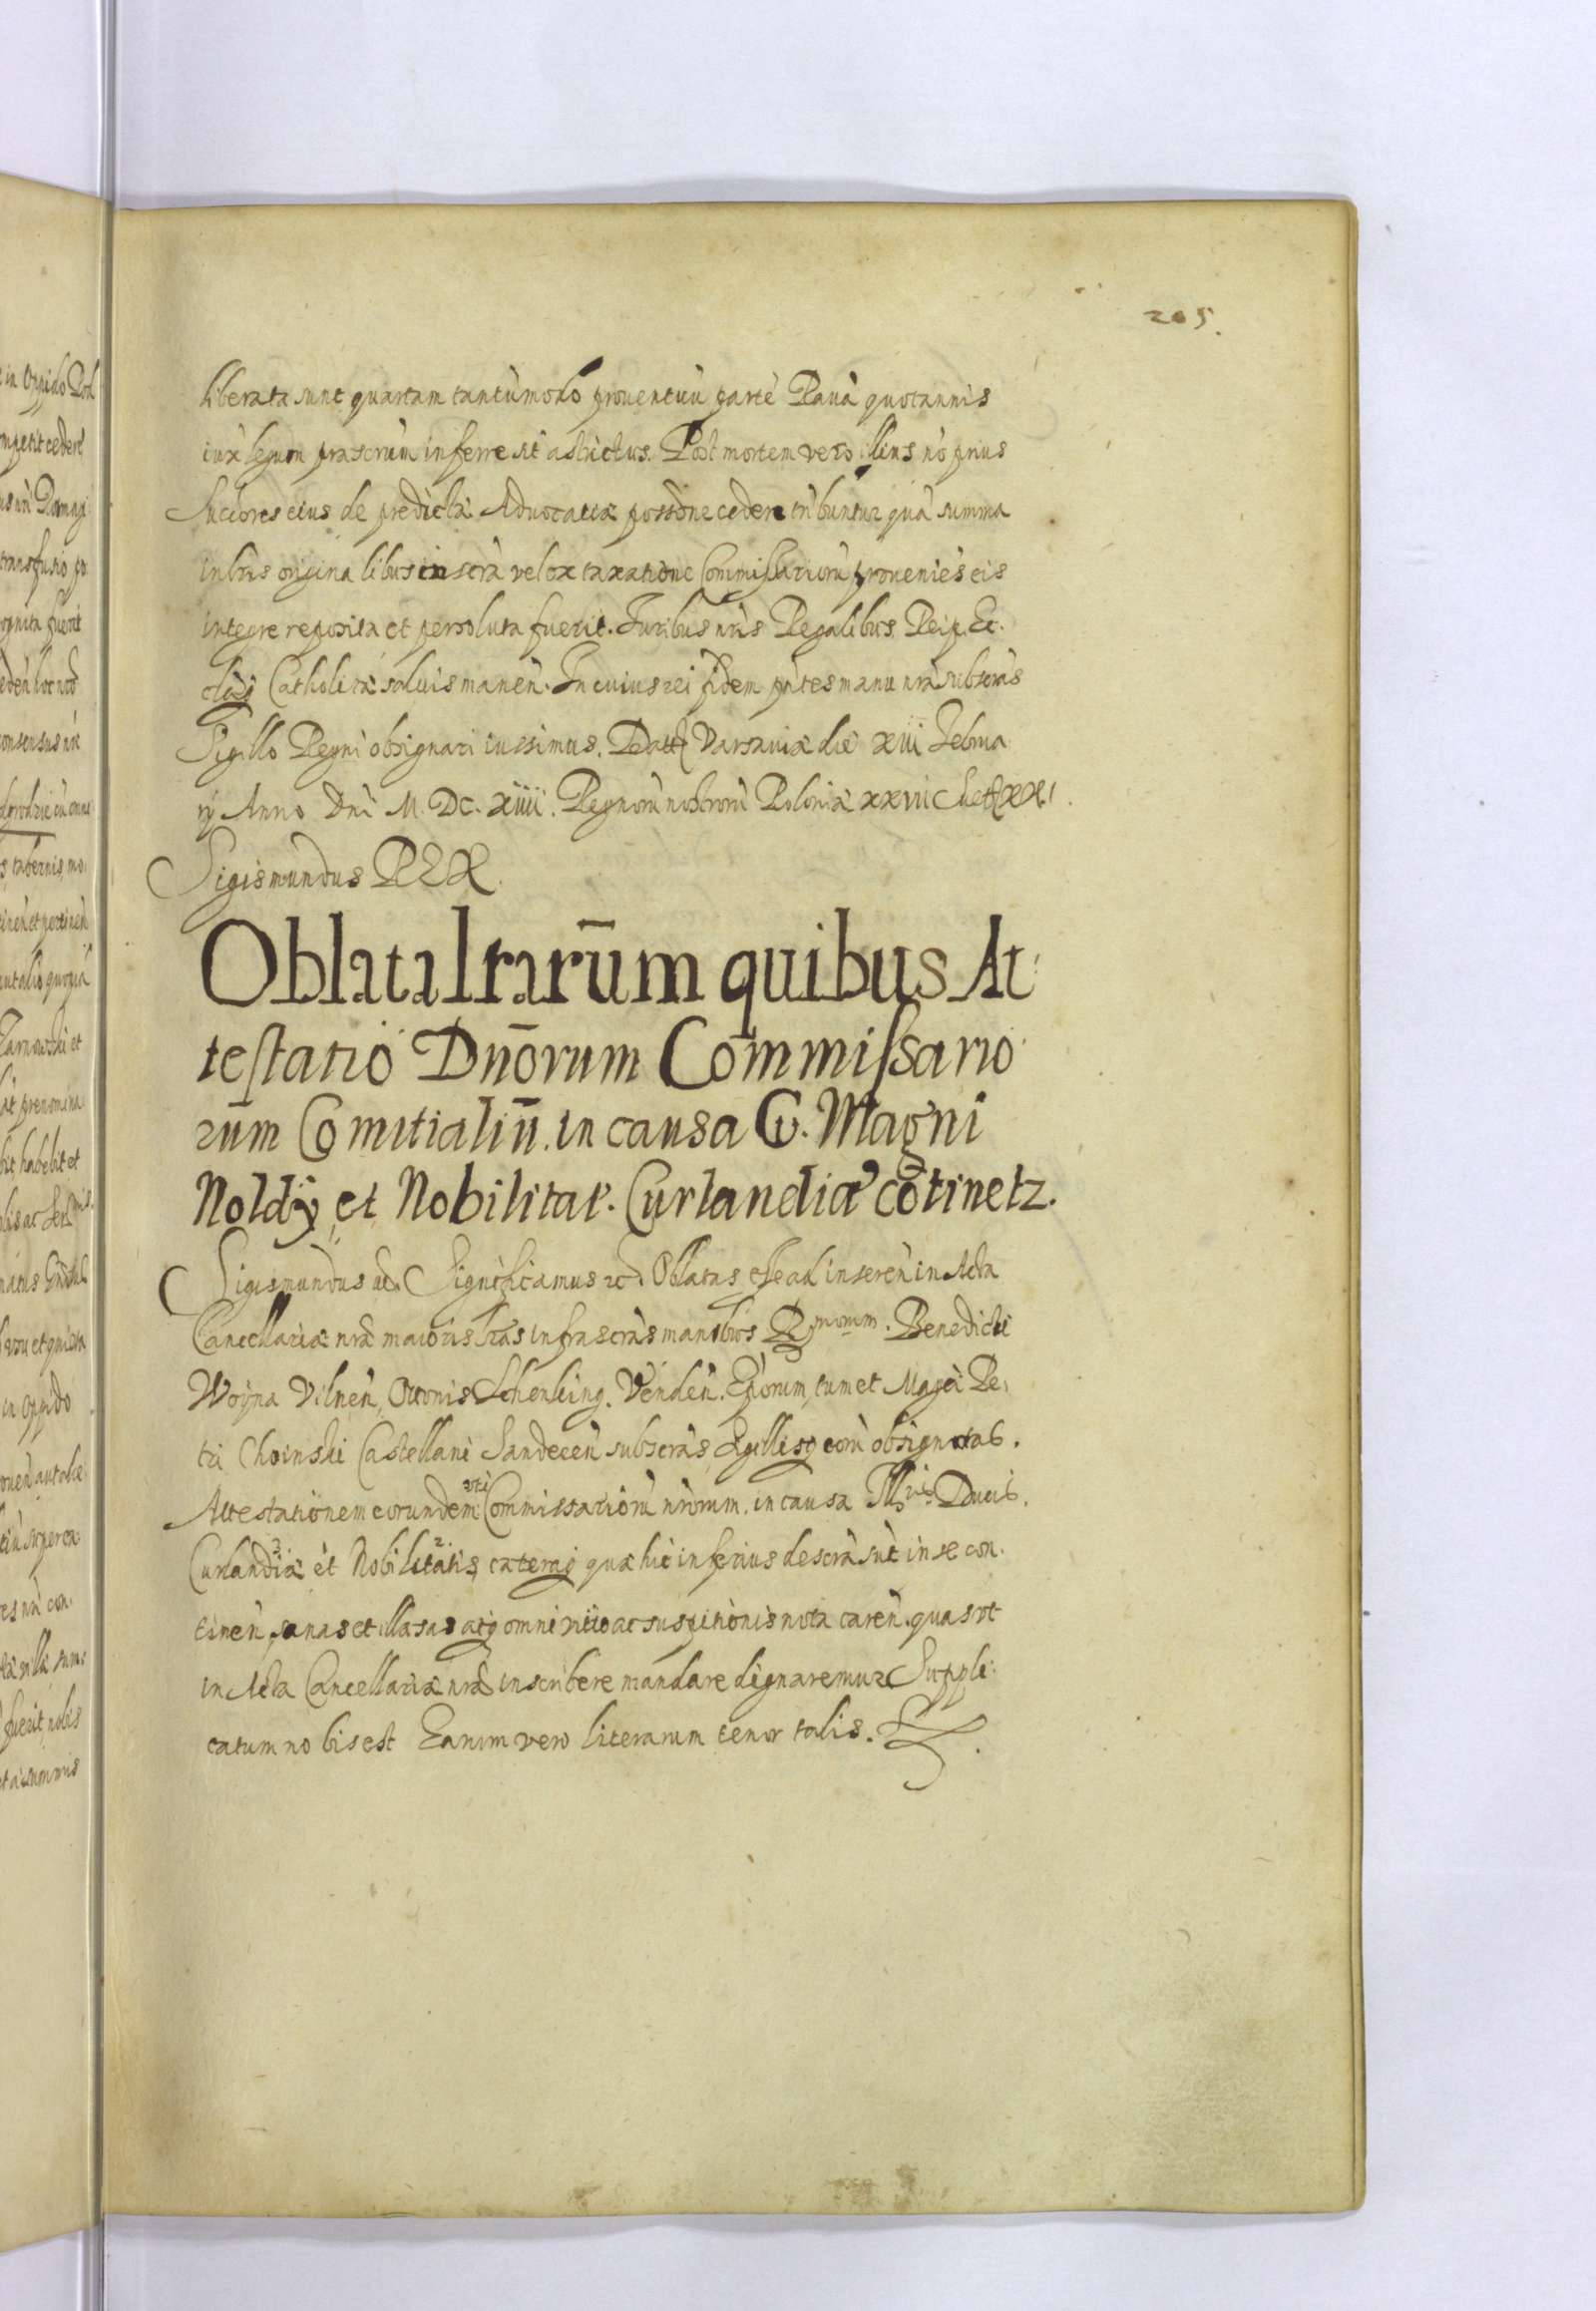 205.
liberata sunt quartam tantùmodo prouentuũ partè Rauã quotannis
iux legum prascrũm inferre sit astrictus. Post mortem vero illius nõ prius
Succores eius de predicta Aduocatia possõne cedere tñbuntur quã summa
in lris originalibus inscra vel ex taxatione Commissariorũ proueniẽs eis
integre reposita et persoluta fuerit. Iuribus nris Regalibus Reip. Ec.
clæq Catholicæ saluis manen. In cuius rei fidem pntes manu nra subscras
Sigillo Regni obsignari iussimus. Datt Varsauiæ die xiii Februa
rij Anno Dni M. DC. xiiii. Regnorũ nostrorũ Poloniæ xxvii Suet xxi.
Sigismundus REX.
Oblata lrarum quibus At:
testatio Dnorum Commissario
rum Comitialiũ in causa G. Magni
Noldÿ et Nobilitat. Curlandiæ cõtinetz.
Sigismundus etc. Significamus etc. Oblatas esse ad inseren in Acta
Cancellariæ nræ maioris lras infrascras manibus Rmorum. Benedicti
Woÿna Vilnen, Ottonis Schenking. Venden. Eporum, tum et Magci Pe,
tri Choinski Castellani Sandecen subscras Sigillisq eorũ obsignatas.
Attestationem eorundem uti Commissariorũ nrorum. in causa Illris Ducis.
Curlandiæ et Nobilitatis, cæteraq quæ hic inferius descra sũt in se con.
tinen, sanas et illæsas atq omni vitio ac suspitionis nota caren. quas vt
in Acta Cancellariæ nræ inscribere mandare dignaremur Suppli:
catum nobis est Earum vero literarum tenor talis.